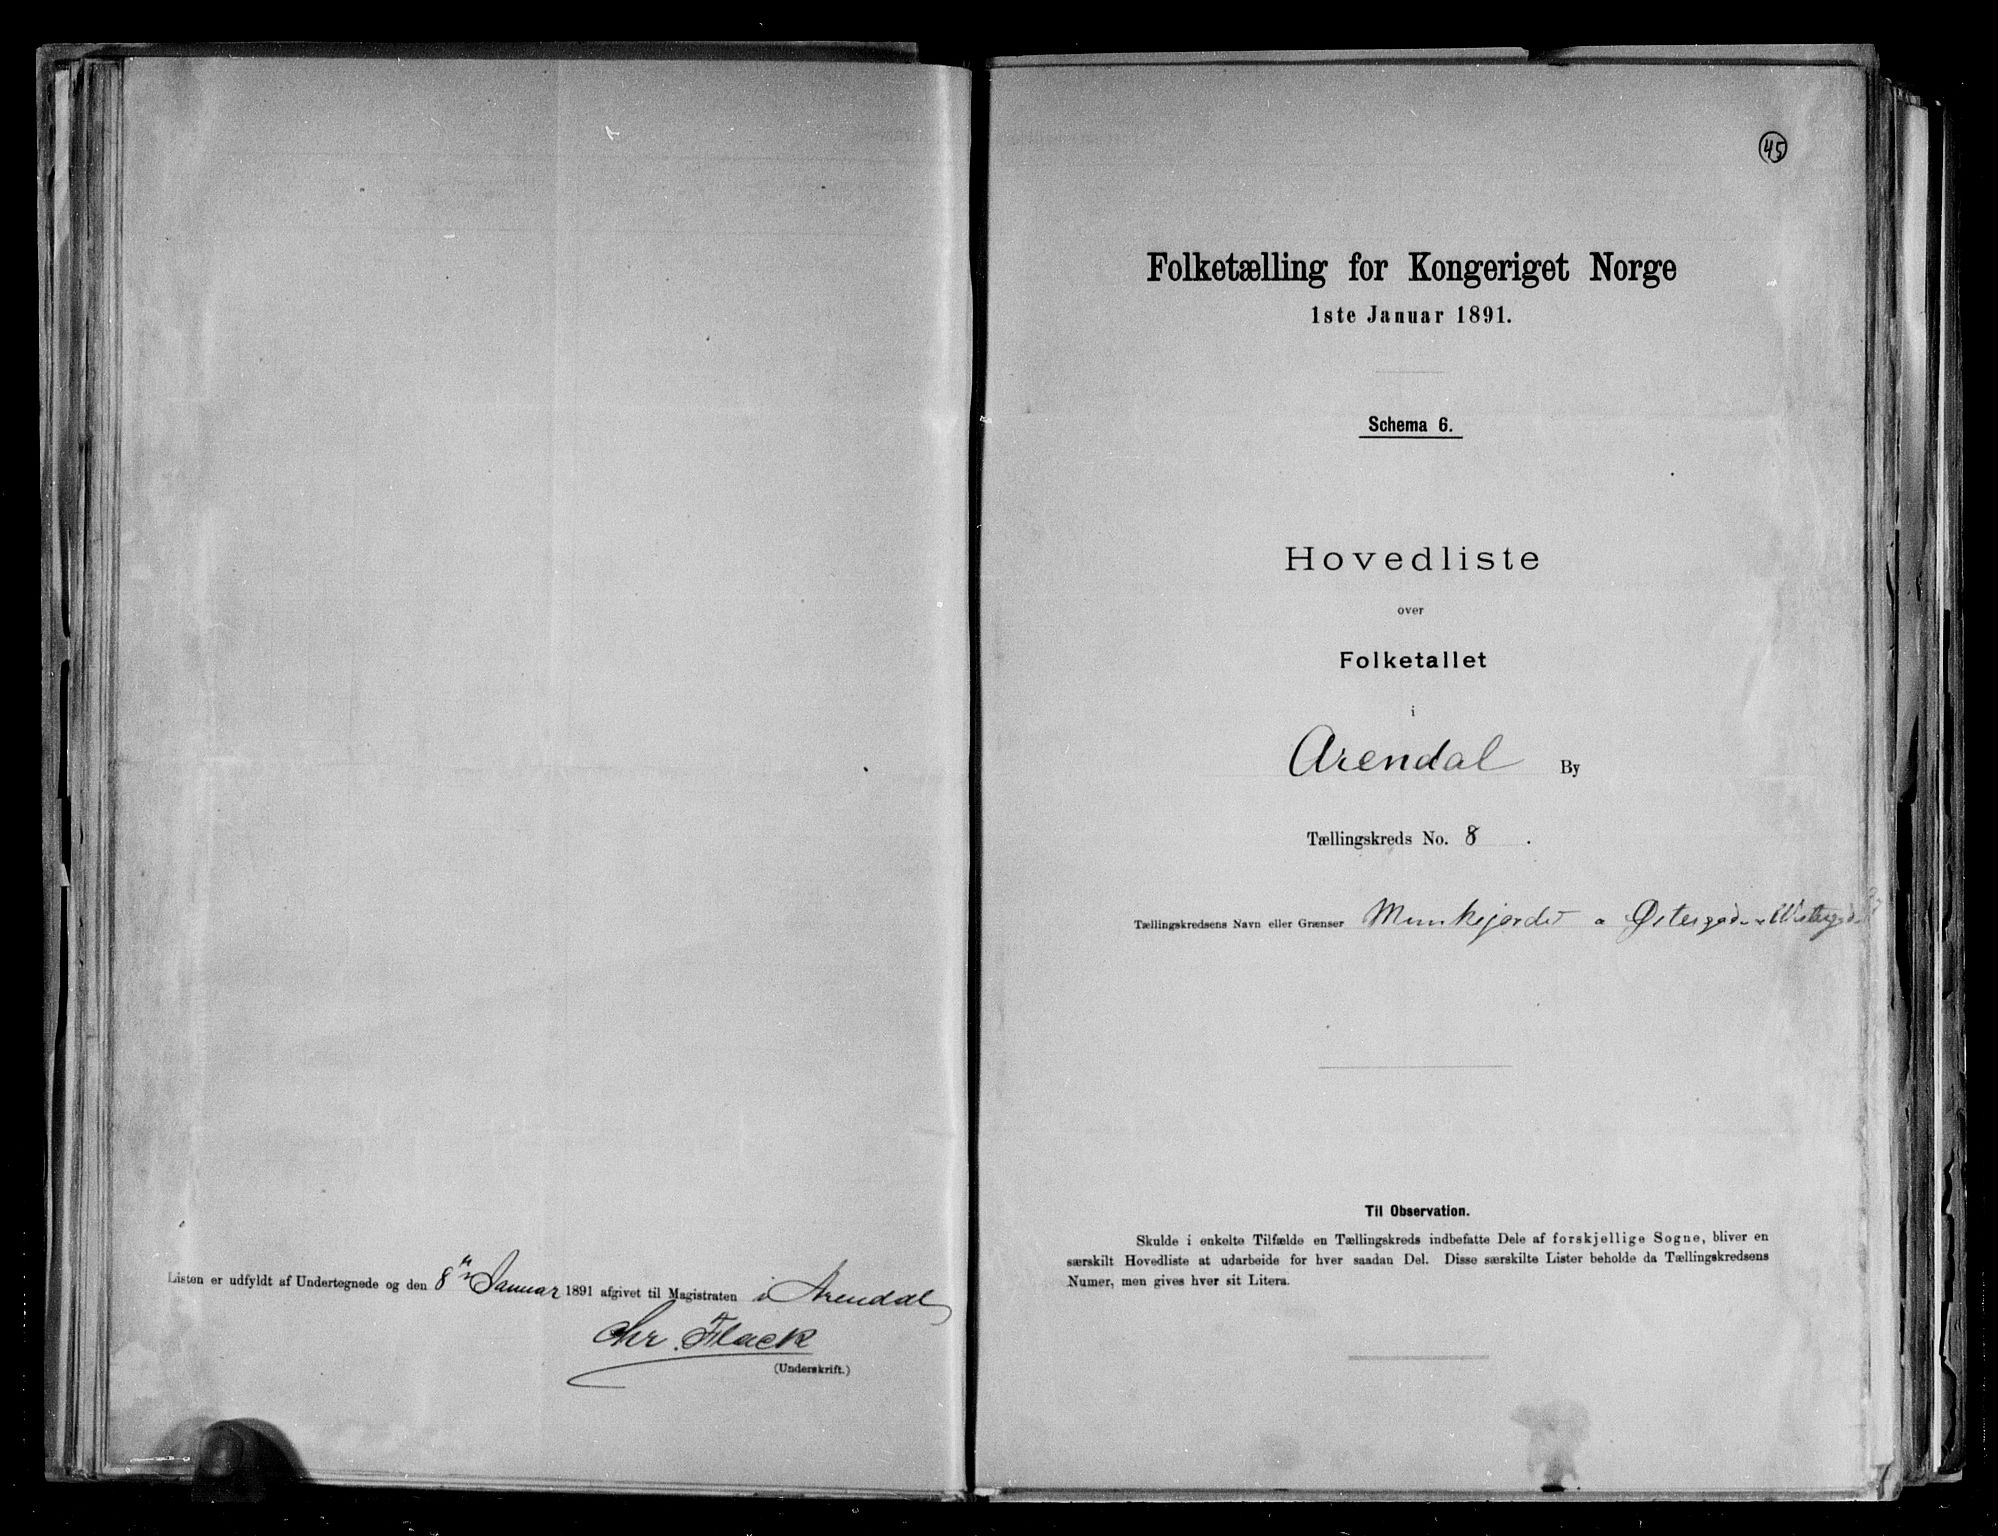 Listen er udfyldt af Undertegnede og den 8de Januar 1891 afgivet til Magistraten i Arendal
Chr. Flack
(Underskrift.)
45
Folketælling for Kongeriget Norge
1ste Januar 1891.
Schema 6.
Hovedliste
over
Folketallet
i
Arendal By
Tællingskreds No. 8.
Tællingskredsens Navn eller Grænser Munkejordet Østergad
Til Observation.
Skulde i enkelte Tilfælde en Tællingskreds indbefatte Dele af forskjellige Sogne, bliver en
særskilt Hovedliste at udarbeide for hver saadan Del. Disse særskilte Lister beholde da Tællingskredsens
Numer, men gives hver sit Litera.